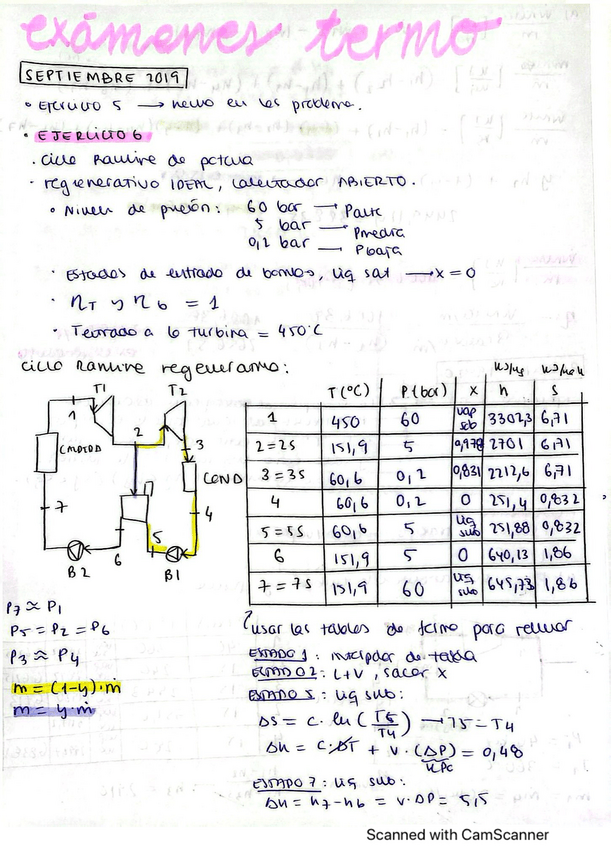 exámenes termo
SEPTIEMBRE 2019
• Ejercicio 5 → hecho en los problema.
• EJERCICIO 6
. Ciclo Rankine de potencia
• regenerativo IDEAL, calentador ABIERTO.
• Niveles de presión: 60 bar → Palta
5 bar → Pmedia
0,2 bar → Pbaja
• Estados de entrada de bombas, liq sat → x = 0
• ηT y ηb = 1
• Tentrada a la turbina = 450°C
Ciclo Rankine regenerativo:
T1
T2
1
2
3
4
5
6
7
CMOTOD
COND
B2
B1
kJ/kg kJ/kg K
T (°C) P. (bar) x h s
1 450 60 vap sob 3302,3 6,71
2=2s 151,9 5 0,978 2701 6,71
3=3s 60,6 0,2 0,831 2212,6 6,71
4 60,6 0,2 0 251,4 0,832
5=5s 60,6 5 liq sub 251,88 0,832
6 151,9 5 0 640,13 1,86
7=7s 151,9 60 liq sub 645,73 1,86
P7 ≈ P1
P5 = P2 = P6
P3 ≈ P4
m = (1-y)·ṁ
m = y·ṁ
usar las tablas de termo para rellenar
ESTADO 1: interpolar de tabla
ESTADO 2: L+V, sacar x
ESTADO 5: liq sub:
ΔS = c · ln (T5/T4) → T5 = T4
Δh = C·ΔT + v · (ΔP) = 0,48
kPa
ESTADO 7: liq sub:
Δh = h7-h6 = v·ΔP = 5,5
Scanned with CamScanner